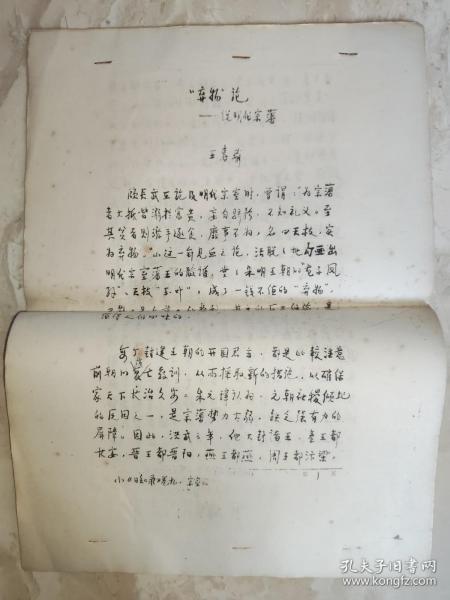 "弃物"论
——说明代宗藩
王春瑜
顾炎武在论及明代宗室时，曾谓："为宗藩
者大抵皆溺于富贵，妄自骄矜，不知礼义。至
其贫者则游手逐食，靡事不为，名曰天枝，实
为弃物。"⑴这一针见血之论，活脱脱地勾画出
明代宗室藩王的
朱明王朝的"龙子凤
孙"、天枝"玉叶"，成了一钱不值的"弃物"，
封建王朝的开国君主，都是比较注意
前朝的衰亡教训，从而采取新的措施，以确保
家天下长治久安。朱元璋认为，元朝社稷倾圮
的原因之一，是宗藩势力太弱，缺乏强有力的
屏障。因此，洪武三年，他大封诸王，秦王都
长安，晋王都晋阳，燕王都燕，周王都汴梁，
⑴《日知录》卷九，宗室。
第 1 页
孔夫子旧书网
www.kongfz.com